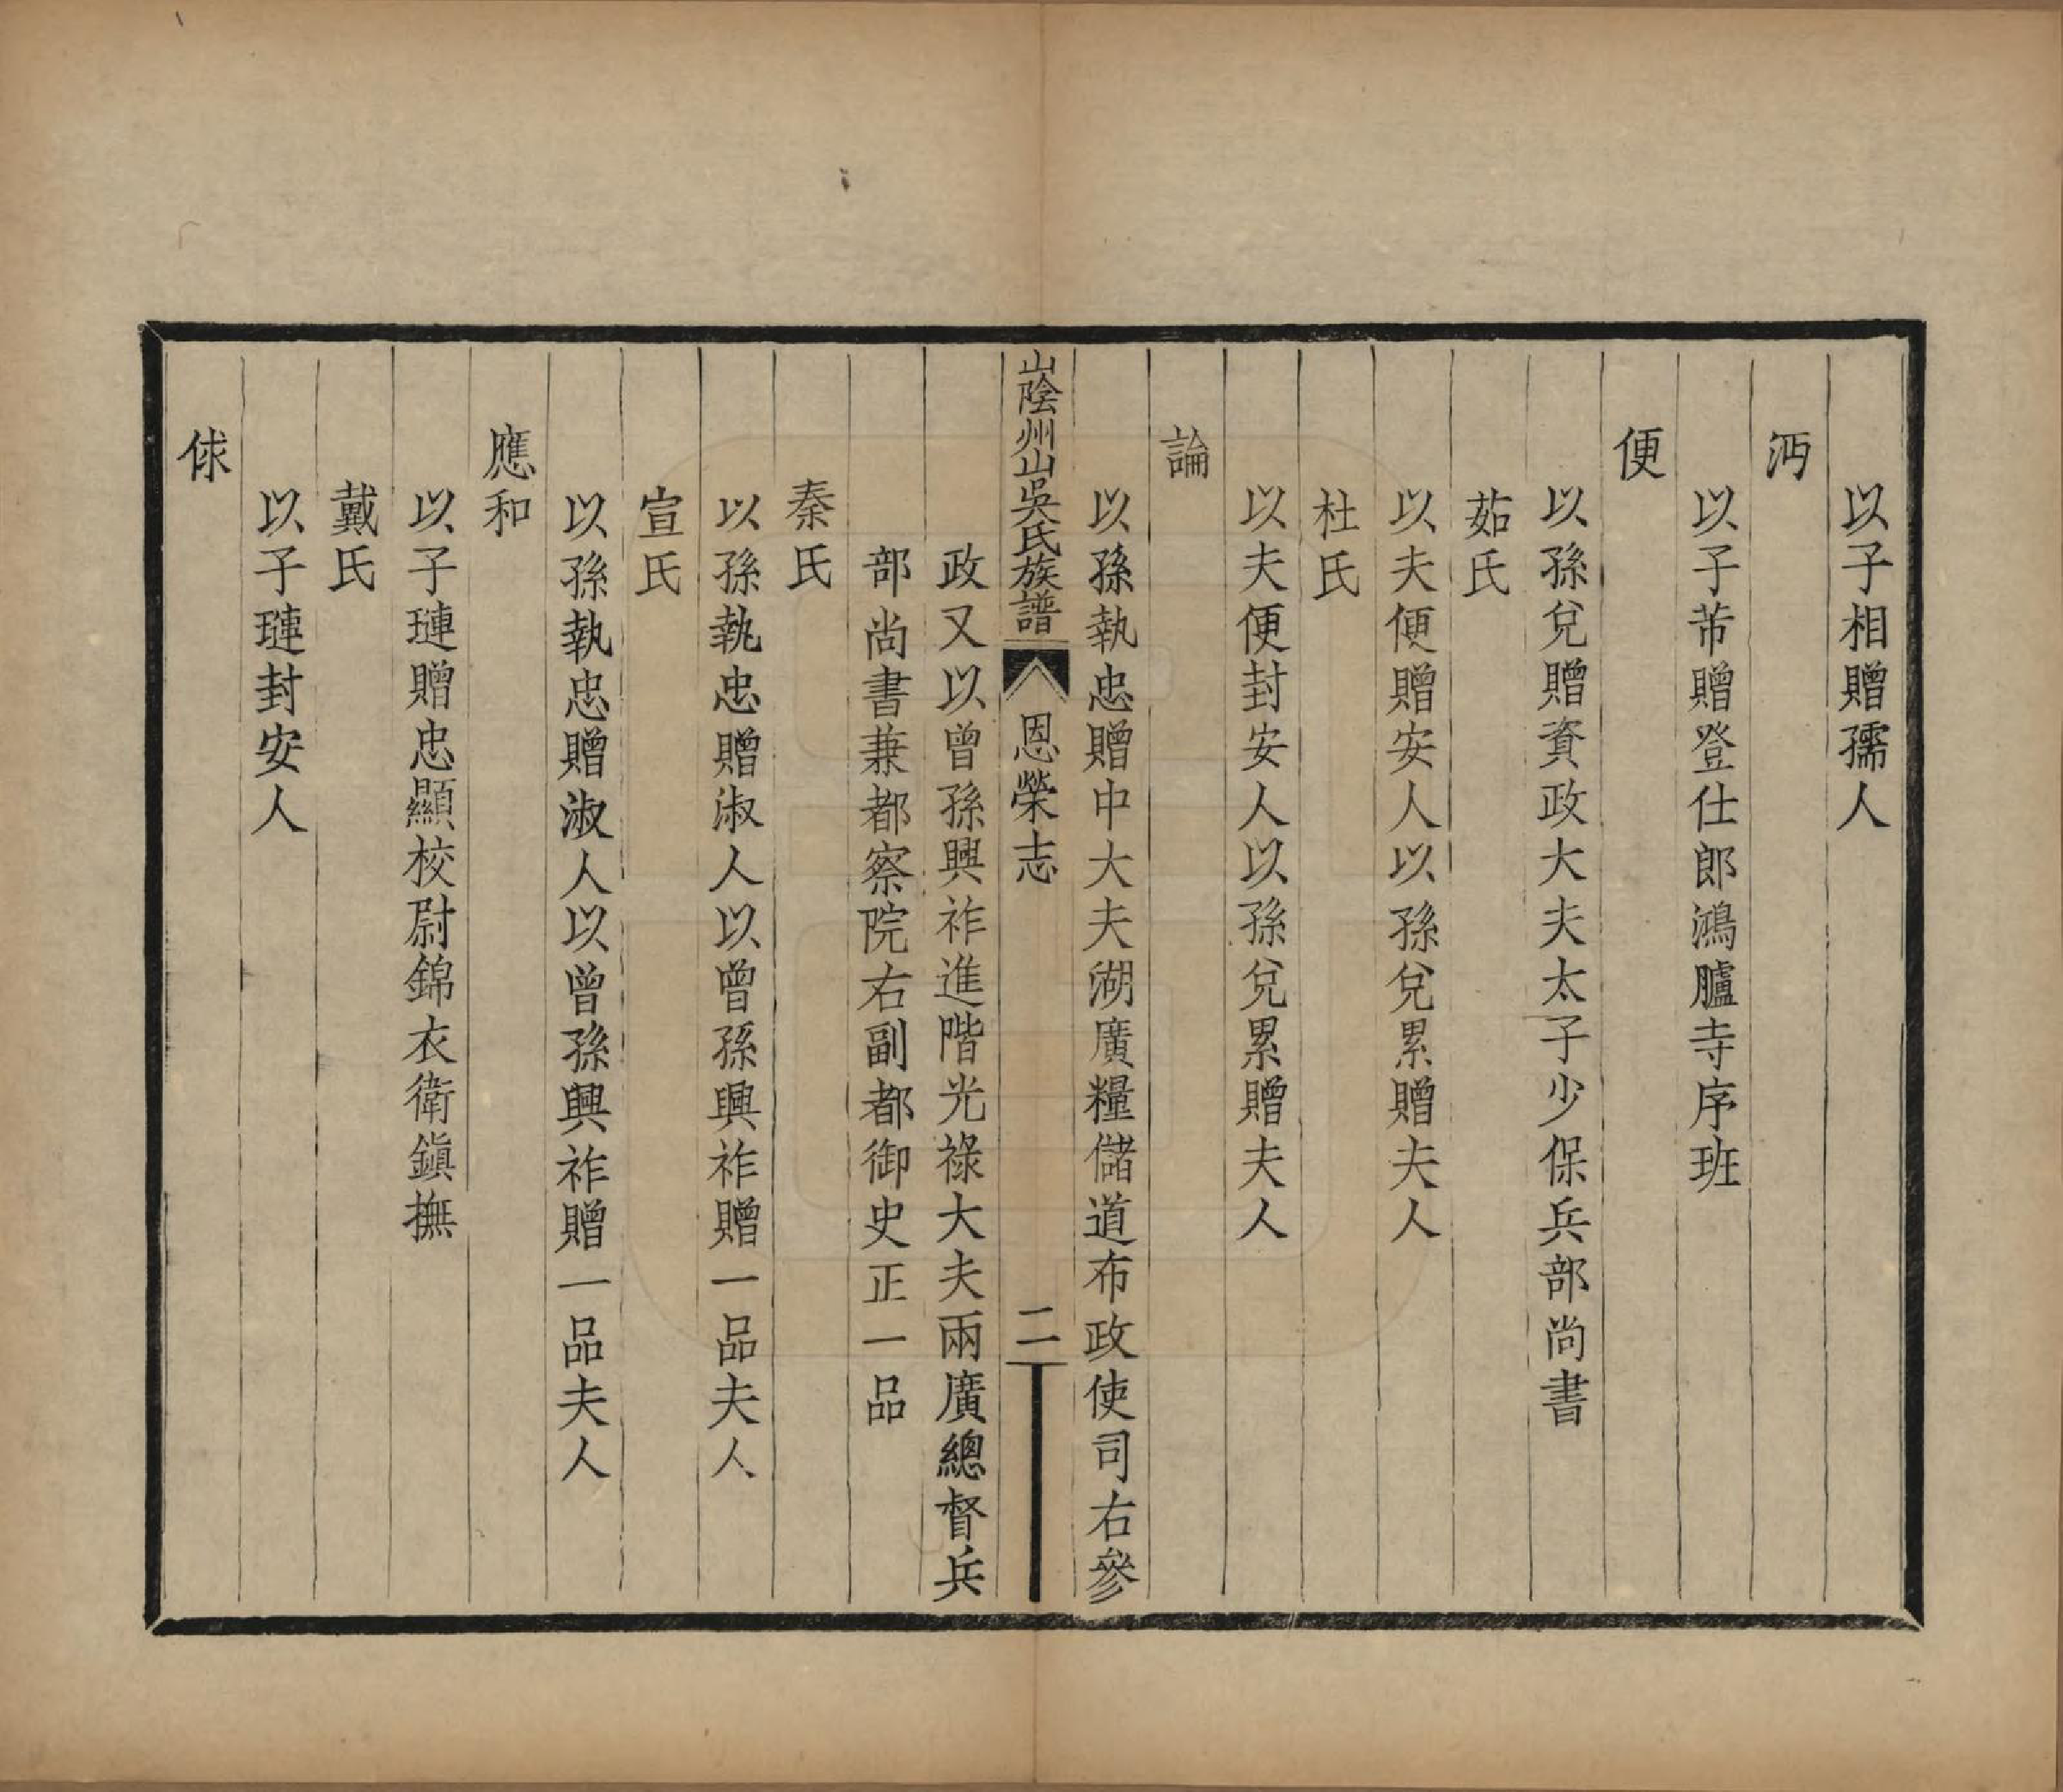 以子相贈孺人
沔
以子芾贈登仕郎鴻臚寺序班
便
以孫兌贈資政大夫太子少保兵部尚書
茹氏
以夫便贈安人以孫兌累贈夫人
杜氏
以夫便封安人以孫兌累贈夫人
論
以孫執忠贈中大夫湖廣糧儲道布政使司右參
山陰州山吳氏族譜 恩榮志 二
政又以曾孫興祚進階光祿大夫兩廣總督兵
部尚書兼都察院右副都御史正一品
秦氏
以孫執忠贈淑人以曾孫興祚贈一品夫人
宣氏
以孫執忠贈淑人以曾孫興祚贈一品夫人
應和
以子璉贈忠顯校尉錦衣衛鎭撫
戴氏
以子璉封安人
俅